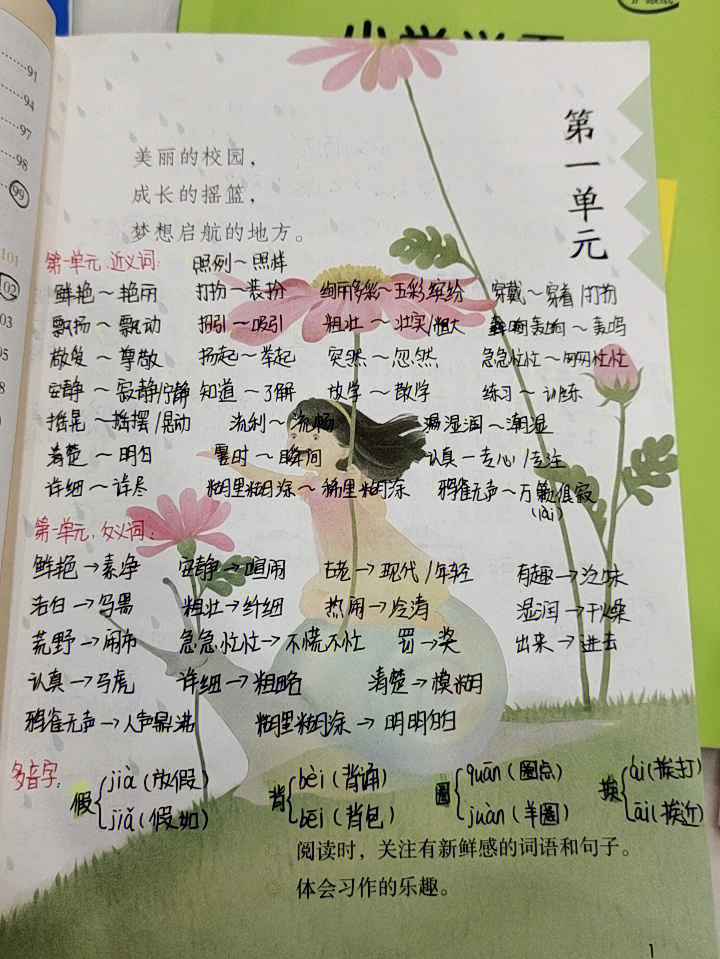 小学学霸
护眼纸
91
94
97
98
99
101
102
03
05
第一单元
美丽的校园，
成长的摇篮，
梦想启航的地方。
第一单元、近义词：　照例～照样
鲜艳～艳丽　打扮～装扮　绚丽多彩～五彩缤纷　穿戴～穿着/打扮
飘扬～飘动　招引～吸引　粗壮～壮实/粗大　轰响～轰鸣
敬爱～尊敬　扬起～举起　突然～忽然　急急忙忙～匆匆忙忙
安静～寂静/宁静　知道～了解　放学～散学　练习～训练
摇晃～摇摆/晃动　流利～流畅　湿润～潮湿
清楚～明白　霎时～瞬间　认真～专心/专注
详细～详尽　糊里糊涂～稀里糊涂　鸦雀无声～万籁俱寂
(lài)
第一单元、反义词：
鲜艳→素净　安静→喧闹　古老→现代/年轻　有趣→泛味
洁白→乌黑　粗壮→纤细　热闹→冷清　湿润→干燥
荒野→闹市　急急忙忙→不慌不忙　罚→奖　出来→进去
认真→马虎　详细→粗略　清楚→模糊
鸦雀无声→人声鼎沸　糊里糊涂→明明白白
多音字：
假{jià(放假)　背{bèi(背诵)　圈{quān(圈点)　挨{ái(挨打)
jiǎ(假如)　bēi(背包)　juàn(羊圈)　āi(挨近)
阅读时，关注有新鲜感的词语和句子。
体会习作的乐趣。
1